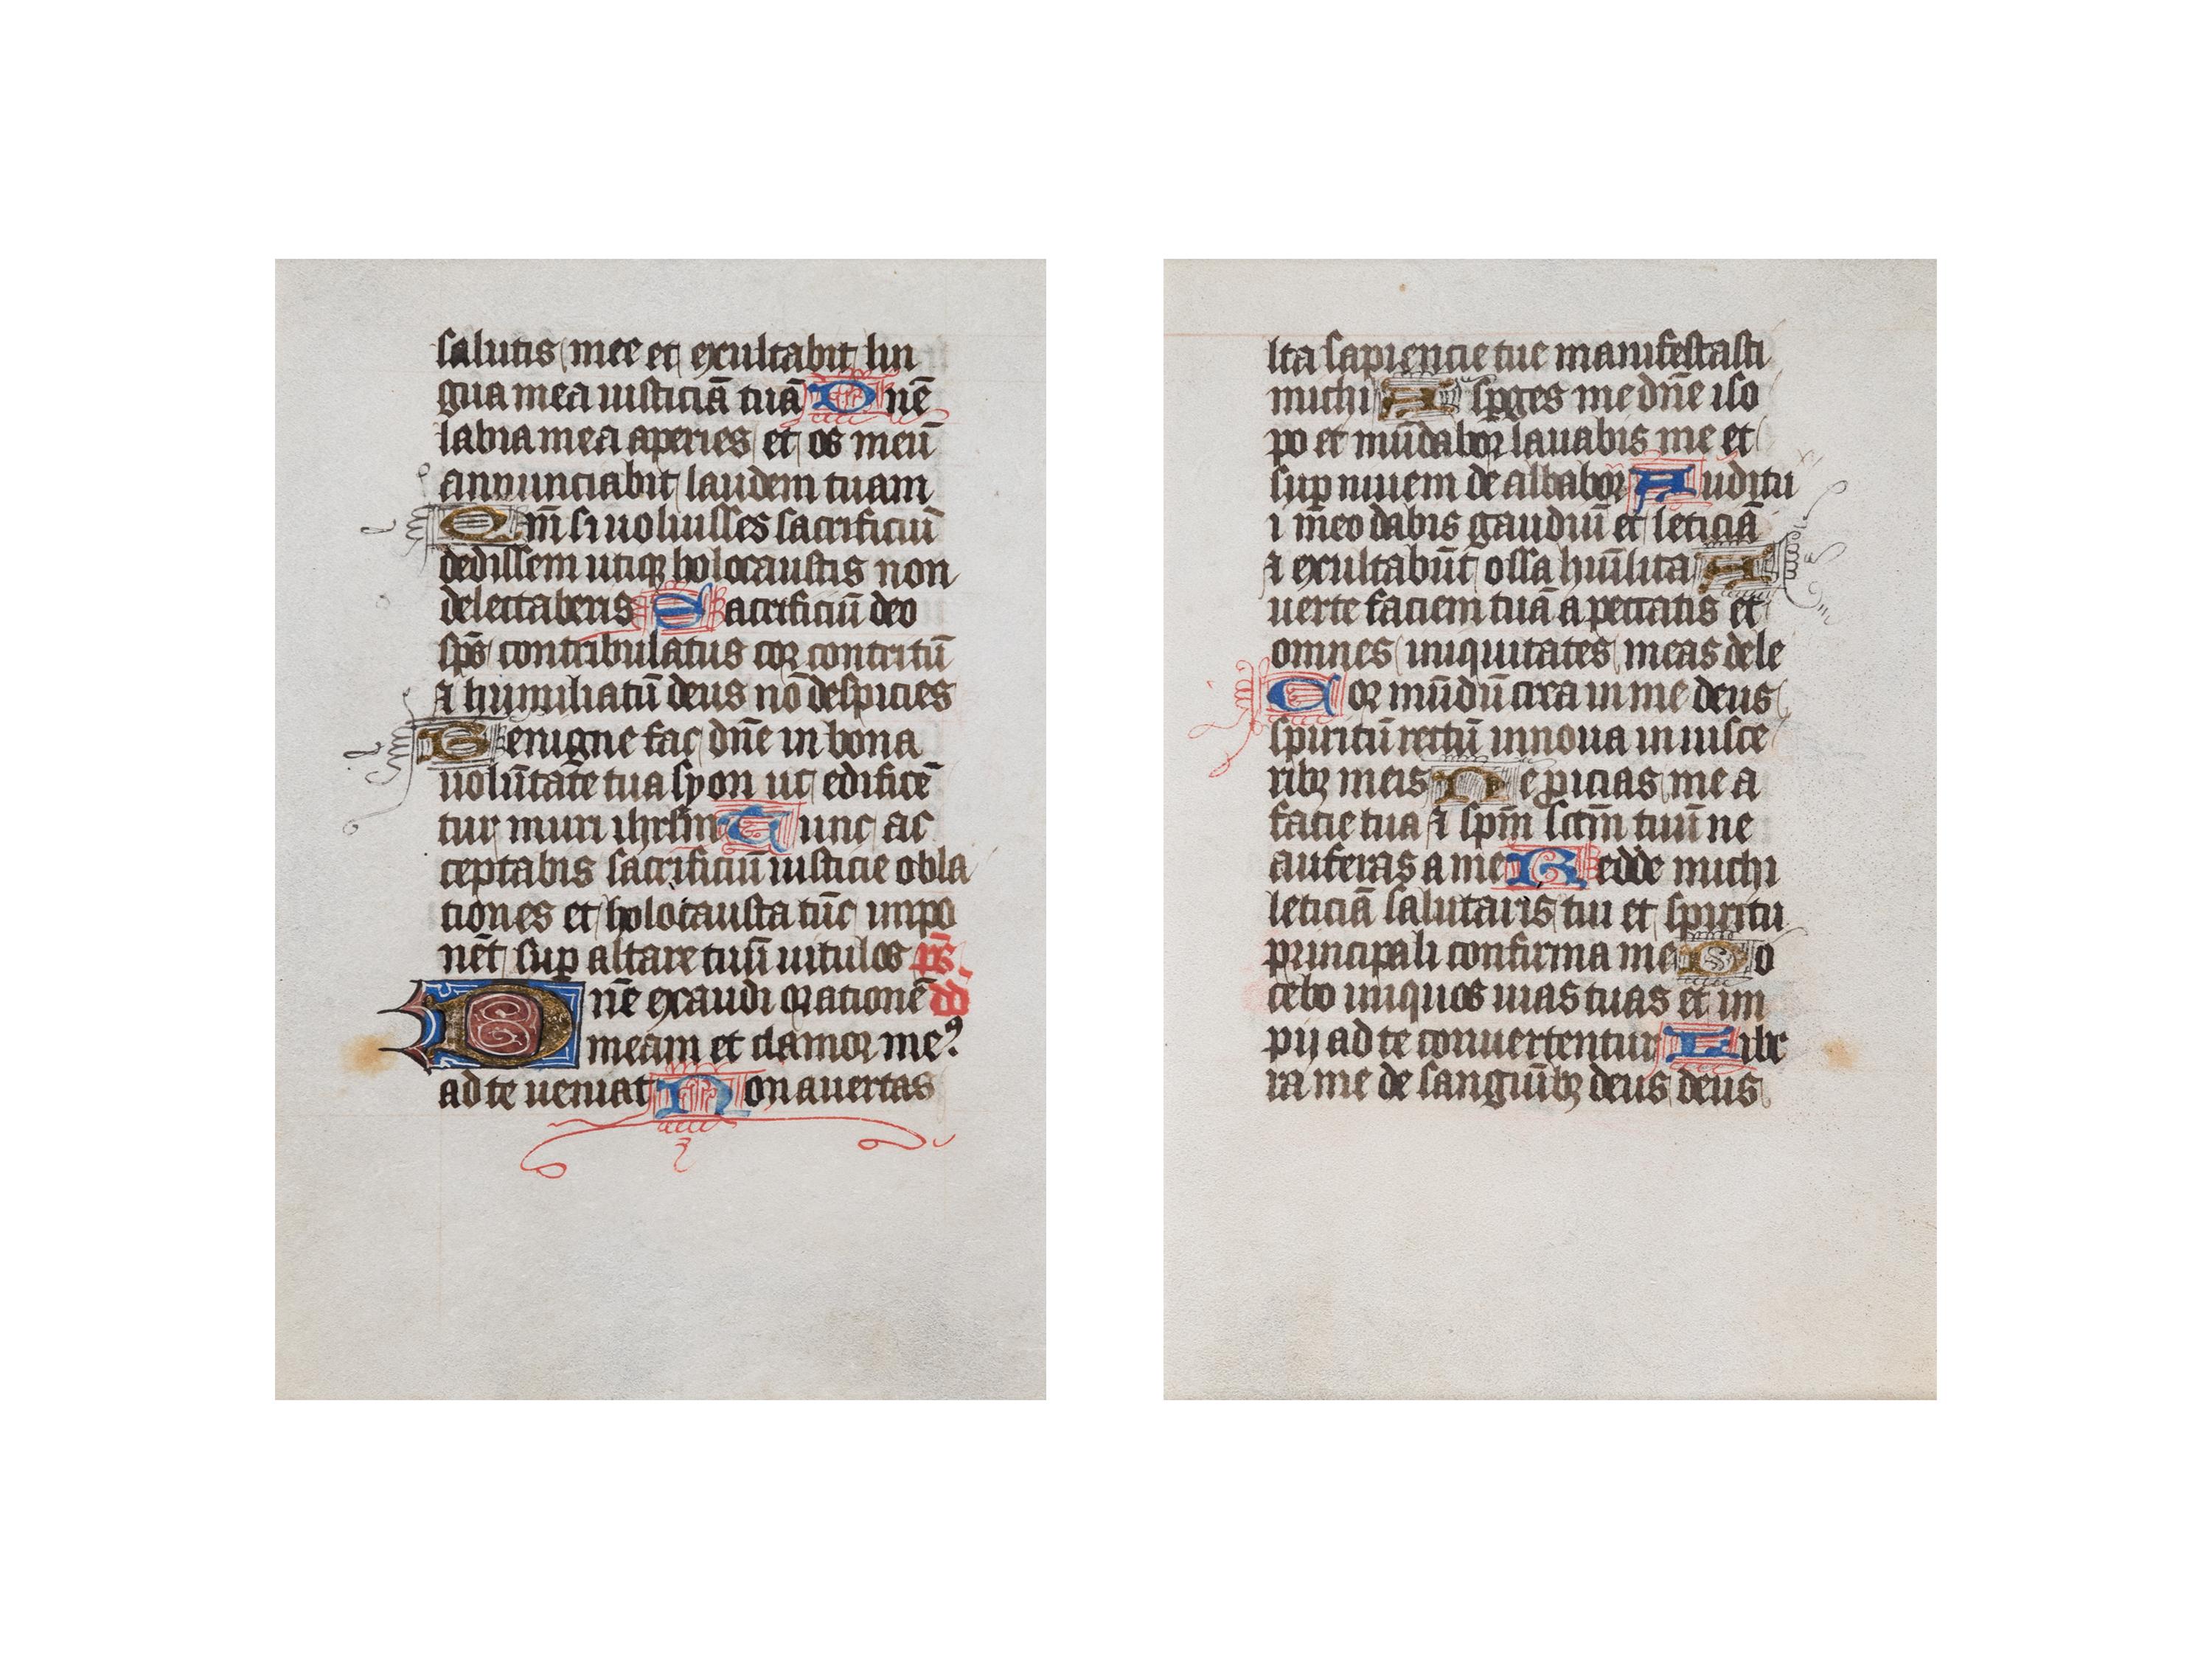 salutis mee et exultabit lin
gua mea iusticiā tuā Dnē
labia mea aperies et os meū
annunciabit laudem tuam
Qm̄ si uoluisses sacrificiū
dedissem utiqꝫ holocaustis non
delectaberis Sacrificiū deo
sp̄s contribulatus cor contritū
⁊ humiliatū deus nō despicies
Benigne fac dn̄e in bona
uolūtate tua syon ut edificē
tur muri ihrlm Tunc ac
ceptabis sacrificiū iusticie obla
tiones et holocausta tūc impo
nēt suꝑ altare tuū uitulos p̄s.
Dn̄e exaudi orationē dd
meam et clamor meꝰ
ad te ueniat Non auertas
lta sapiencie tue manifestasti
michi Aspges me dn̄e iso
po et mūdabor lauabis me et
suꝑ niuem de albabor Auditu
i meo dabis gaudiū et leticiā
⁊ exultabūt ossa huīlita A
uerte faciem tuā a peccatis et
omnes iniquitates meas dele
Cor mūdū crea in me deus
spiritū rectū innoua in uisce
ribꝫ meis Ne ꝓicias me a
facie tua ⁊ spm̄ scm̄ tuū ne
auferas a me Redde michi
leticiā salutaris tui et spiritu
principali confirma me Do
cebo iniquos uias tuas et im
pij ad te conuertentur Libe
ra me de sanguībꝫ deus deus